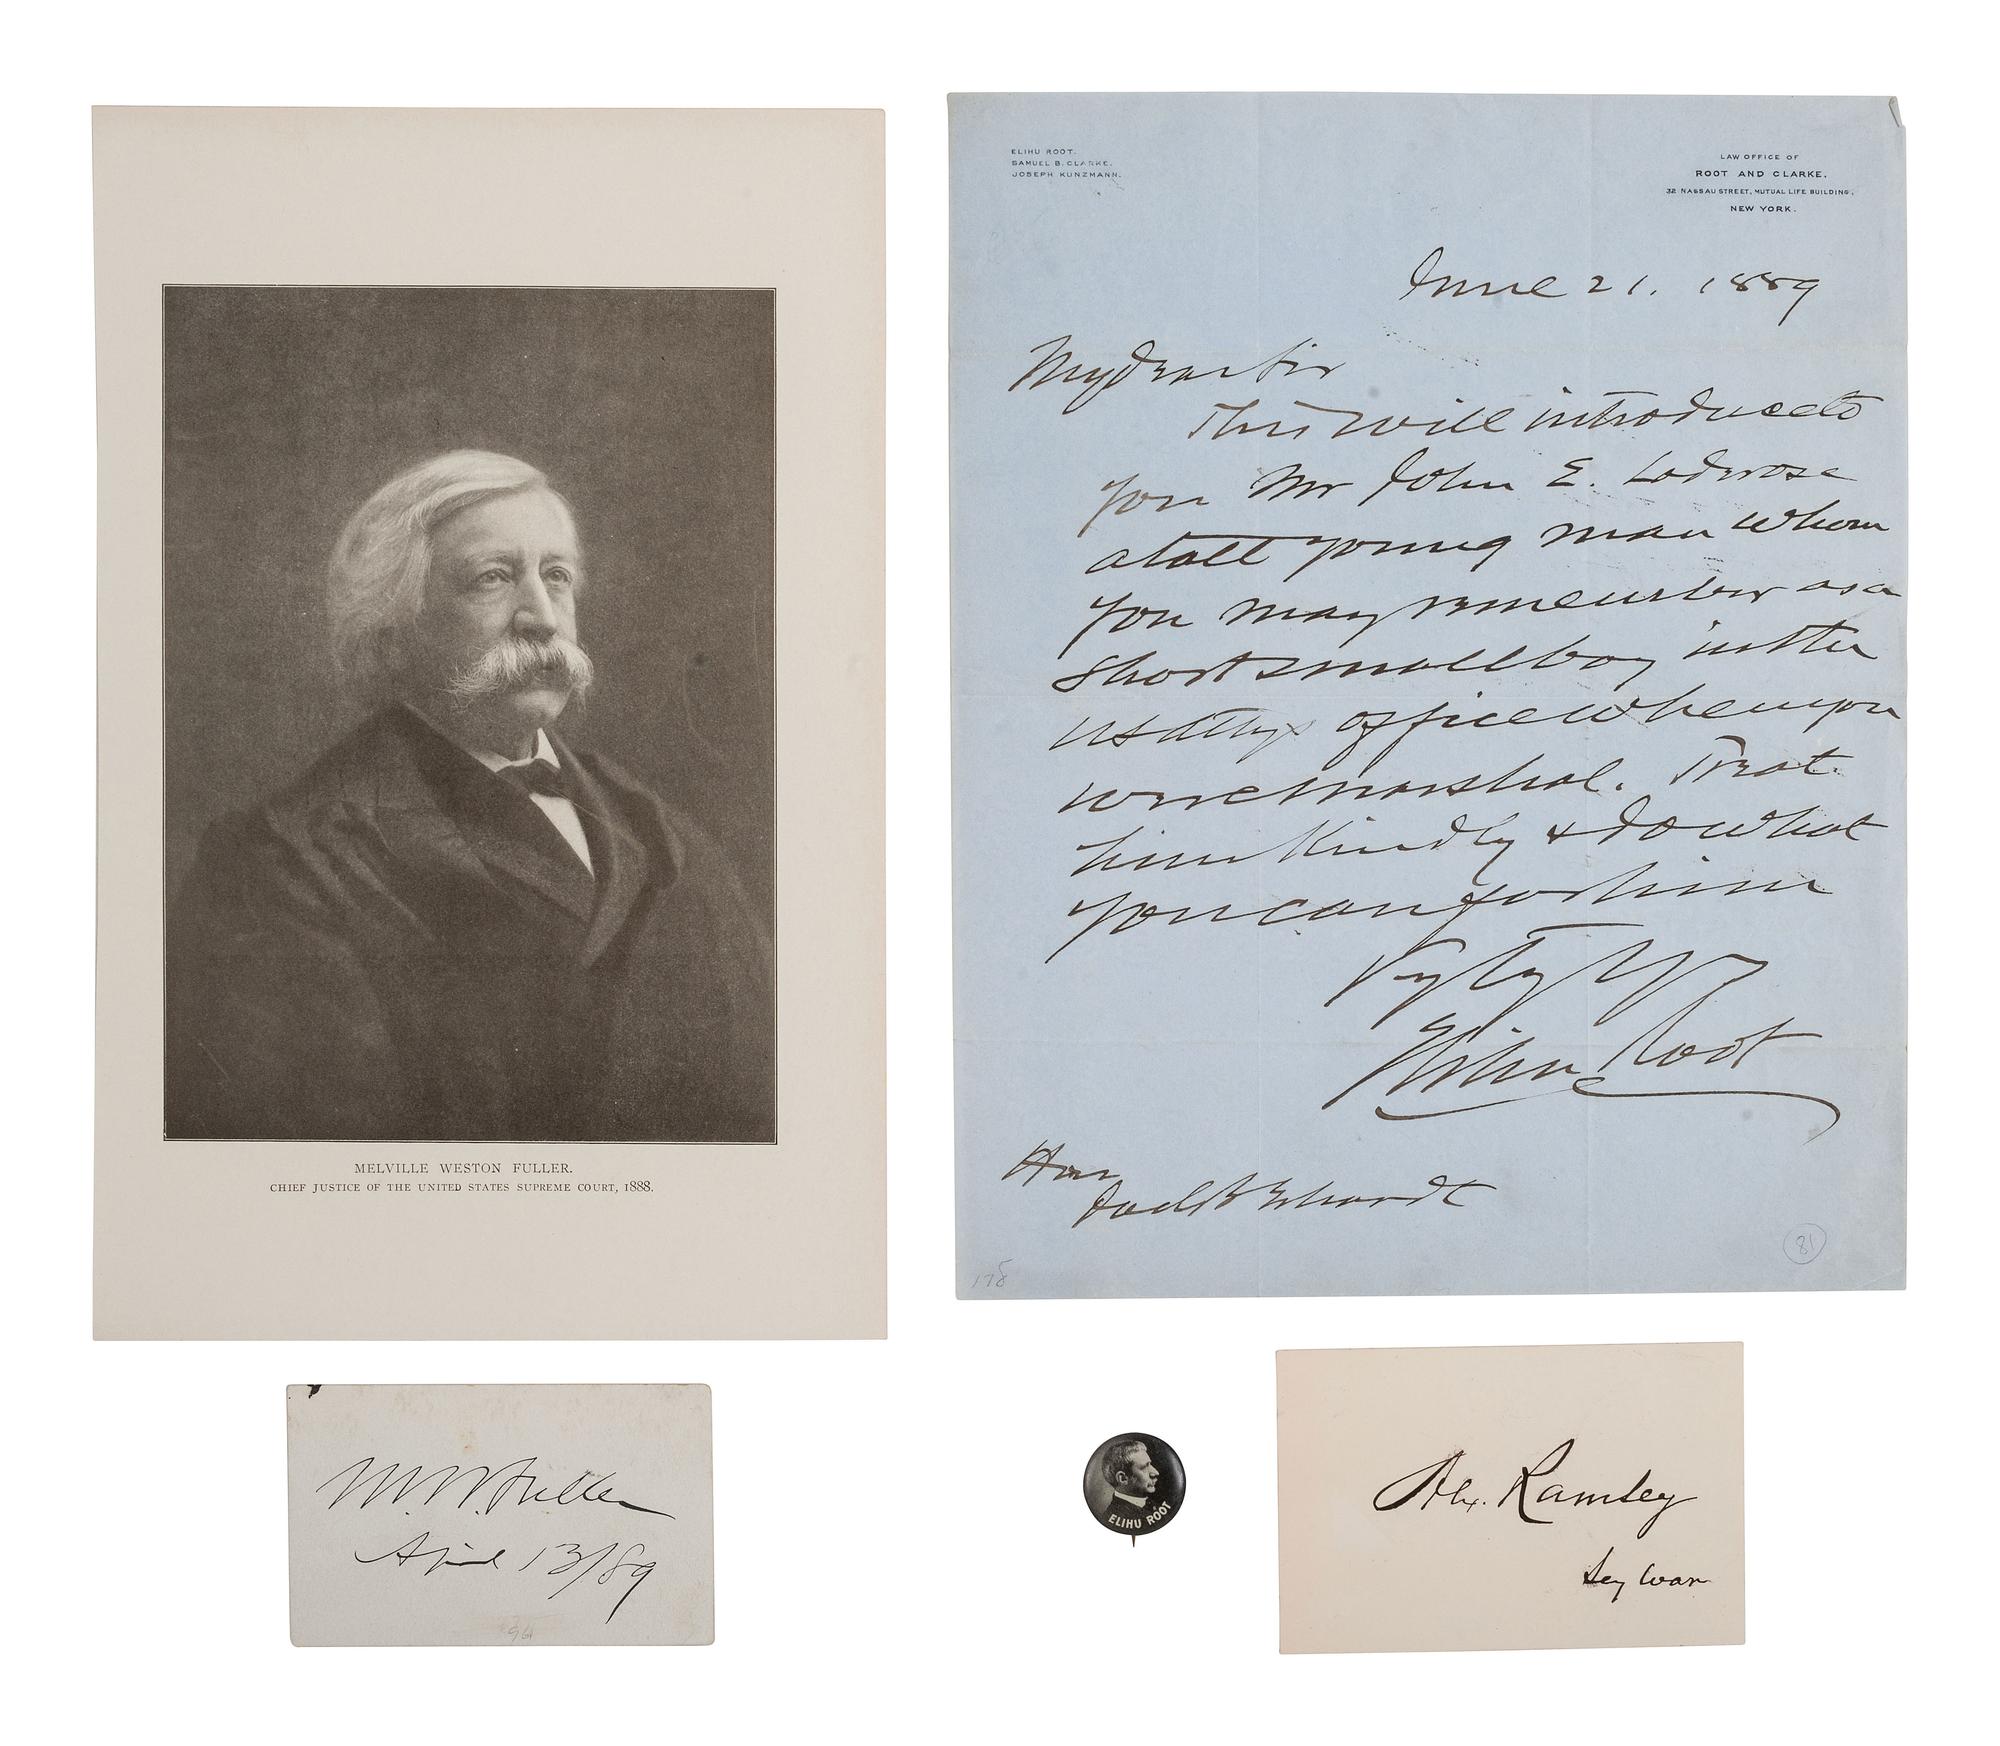 MELVILLE WESTON FULLER.
CHIEF JUSTICE OF THE UNITED STATES SUPREME COURT, 1888.
M. W. Fuller
April 13/89
96
ELIHU ROOT.
SAMUEL B. CLARKE.
JOSEPH KUNZMANN.
LAW OFFICE OF
ROOT AND CLARKE.
32 NASSAU STREET, MUTUAL LIFE BUILDING.
NEW YORK.
June 21. 1889
My dear Sir
This will introduce to
you Mr John E.
a tall young man whom
you may remember as a
short small boy in the
US Attys office when you
were Marshal. Treat
him kindly & do what
you can for him
Vy Ty Yrs
Elihu Root
Hon
Joel B Erhardt
178
81
ELIHU ROOT
Alex. Ramsey
Secy War